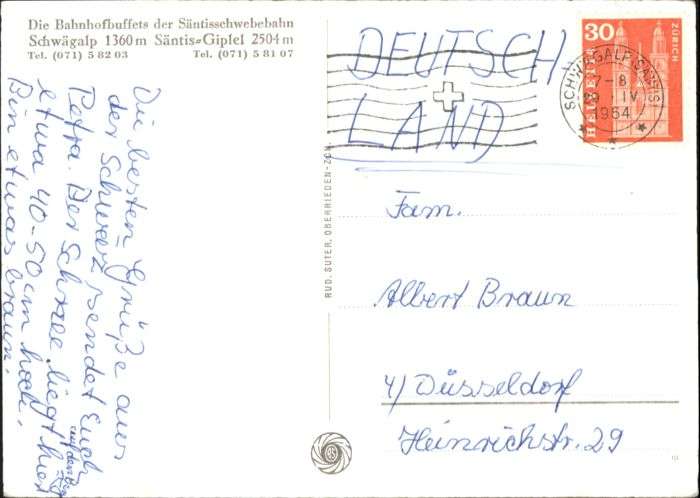 Die Bahnhofbuffets der Säntisschwebebahn
Schwägalp 1360 m Säntis=Gipfel 2504 m
Tel. (071) 5 82 03 Tel. (071) 5 81 07
Die besten Grüße aus
der Schwarz sendet Euch
Petra. Der Schnee liegt hier
auf den
etwa 40-50 cm hoch.
Bin etwas braun.
RUD. SUTER, OBERRIEDEN-ZCH.
DEUTSCH
LAND
30
HELVETIA
ZÜRICH
SCHWÄGALP (SÄNTIS)
7-8
29. IV
1964
Fam.
Albert Braun
4/ Düsseldorf
Heinrichstr. 29